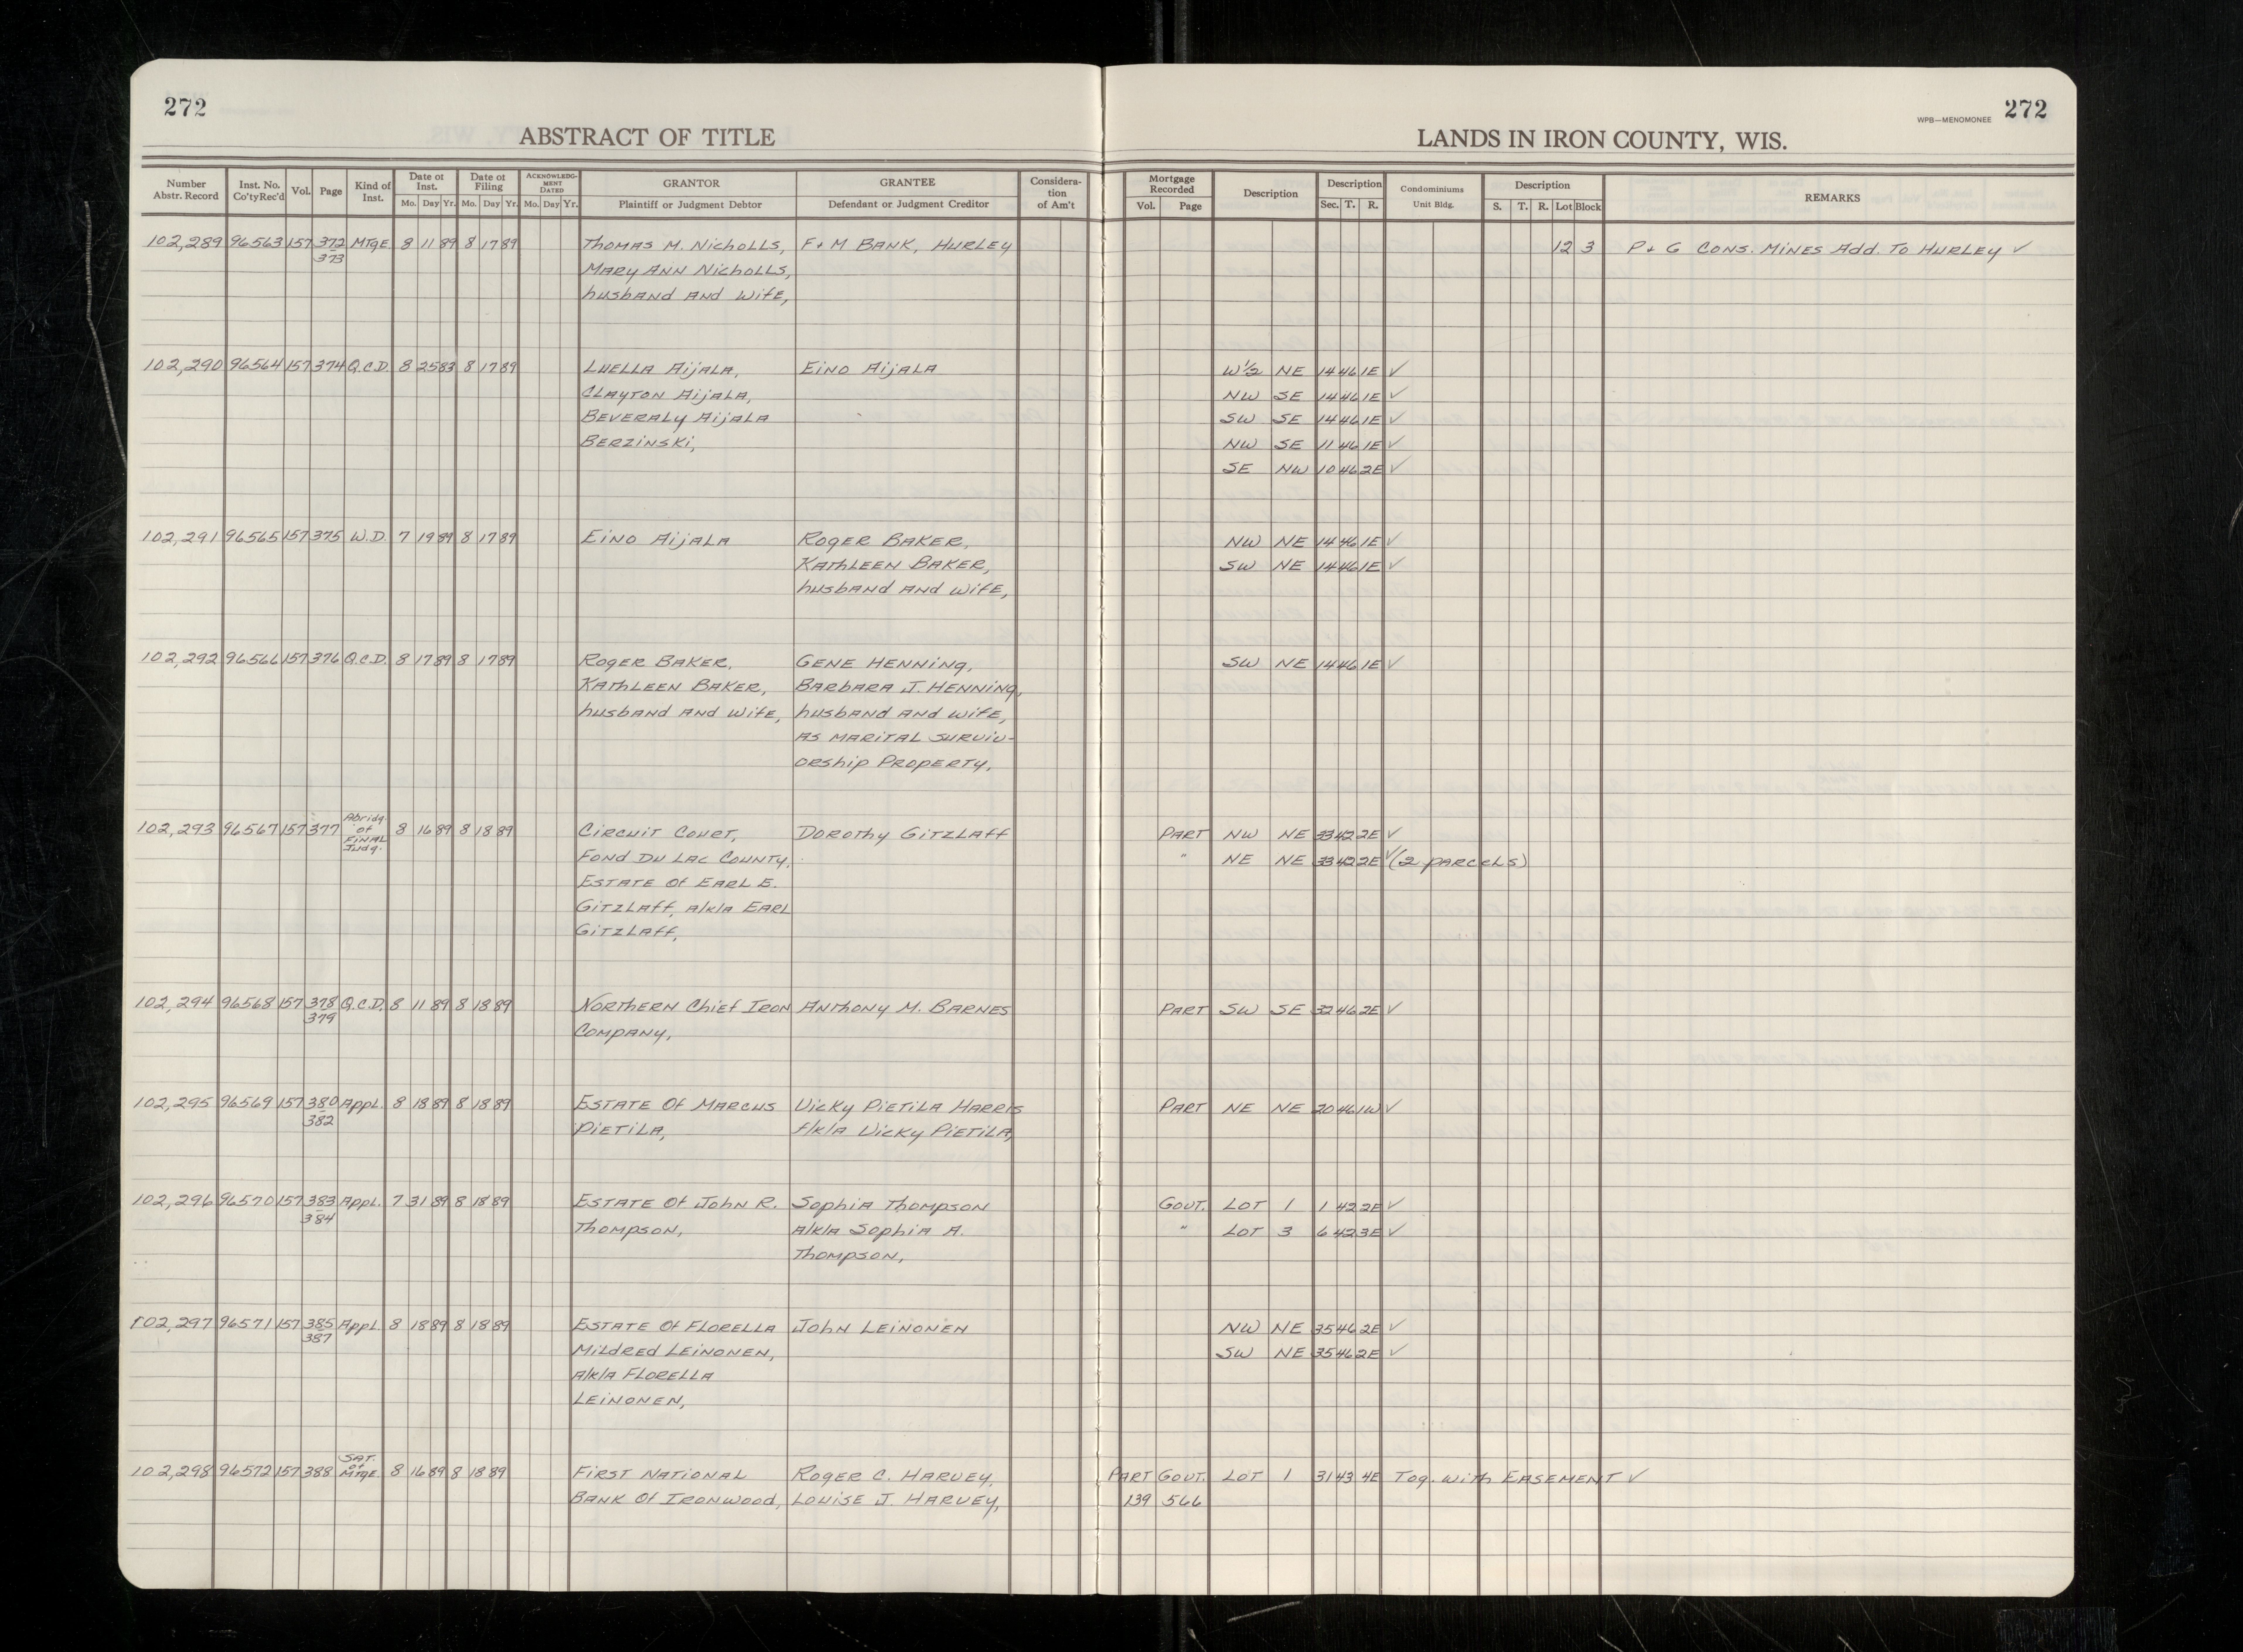 272
ABSTRACT OF TITLE
LANDS IN IRON COUNTY, WIS.
WPB—MENOMONEE 272
Number Abstr. Record | Inst. No. Co'tyRec'd | Vol. | Page | Kind of Inst. | Date of Inst. Mo. Day Yr. | Date of Filing Mo. Day Yr. | ACKNOWLEDGMENT DATED Mo. Day Yr. | GRANTOR Plaintiff or Judgment Debtor | GRANTEE Defendant or Judgment Creditor | Consideration of Am't | Mortgage Recorded Vol. Page | Description | Description Sec. T. R. | Condominiums Unit Bldg. | Description S. T. R. Lot Block | REMARKS
102,289 96563 157 372 MTGE 8 11 89 8 17 89 THOMAS M. NICHOLLS, F + M BANK, HURLEY 12 3 P + G CONS. MINES Add. TO HURLEY ✓
373 MARY ANN NICHOLLS,
husband AND Wife,
102,290 96564 157 374 Q.C.D. 8 25 83 8 17 89 LUELLA AIJALA, EINO AIJALA W½ NE 14 46 1E ✓
CLAYTON AIJALA, NW SE 14 46 1E ✓
BEVERALY AIJALA SW SE 14 46 1E ✓
BERZINSKI, NW SE 11 46 1E ✓
SE NW 10 46 2E ✓
102,291 96565 157 375 W.D. 7 19 89 8 17 89 EINO AIJALA ROGER BAKER, NW NE 14 46 1E ✓
KATHLEEN BAKER, SW NE 14 46 1E ✓
husband AND wife,
102,292 96566 157 376 Q.C.D. 8 17 89 8 17 89 ROGER BAKER, GENE HENNING, SW NE 14 46 1E ✓
KATHLEEN BAKER, BARBARA J. HENNING,
husband AND Wife, husband AND wife,
AS MARITAL SURVIV-
ORSHIP PROPERTY,
102,293 96567 157 377 Abridg. of FINAL Judg. 8 16 89 8 18 89 CIRCUIT COURT, DOROTHY GITZLAFF PART NW NE 33 42 2E ✓
FOND DU LAC COUNTY, " NE NE 33 42 2E ✓ (2 PARCELS)
ESTATE Of EARL E.
GITZLAFF, A/K/A EARL
GITZLAFF,
102,294 96568 157 378 Q.C.D. 8 11 89 8 18 89 NORTHERN Chief IRON ANTHONY M. BARNES PART SW SE 32 46 2E ✓
379 COMPANY,
102,295 96569 157 380 Appl. 8 18 89 8 18 89 ESTATE Of MARCUS VICKY PIETILA HARRIS PART NE NE 20 46 1W ✓
382 PIETILA, f/k/A VICKY PIETILA,
102,296 96570 157 383 Appl. 7 31 89 8 18 89 ESTATE Of JOHN R. SOPHIA THOMPSON GOVT. LOT 1 1 42 2E ✓
384 THOMPSON, A/K/A SOPHIA A. " LOT 3 6 42 3E ✓
THOMPSON,
102,297 96571 157 385 Appl. 8 18 89 8 18 89 ESTATE Of FLORELLA JOHN LEINONEN NW NE 35 46 2E ✓
387 MILDRED LEINONEN, SW NE 35 46 2E ✓
A/K/A FLORELLA
LEINONEN,
102,298 96572 157 388 SAT. of MTGE 8 16 89 8 18 89 FIRST NATIONAL ROGER C. HARVEY, PART GOVT. LOT 1 31 43 4E Tog. with EASEMENT ✓
BANK Of IRONWOOD, LOUISE J. HARVEY, 139 566